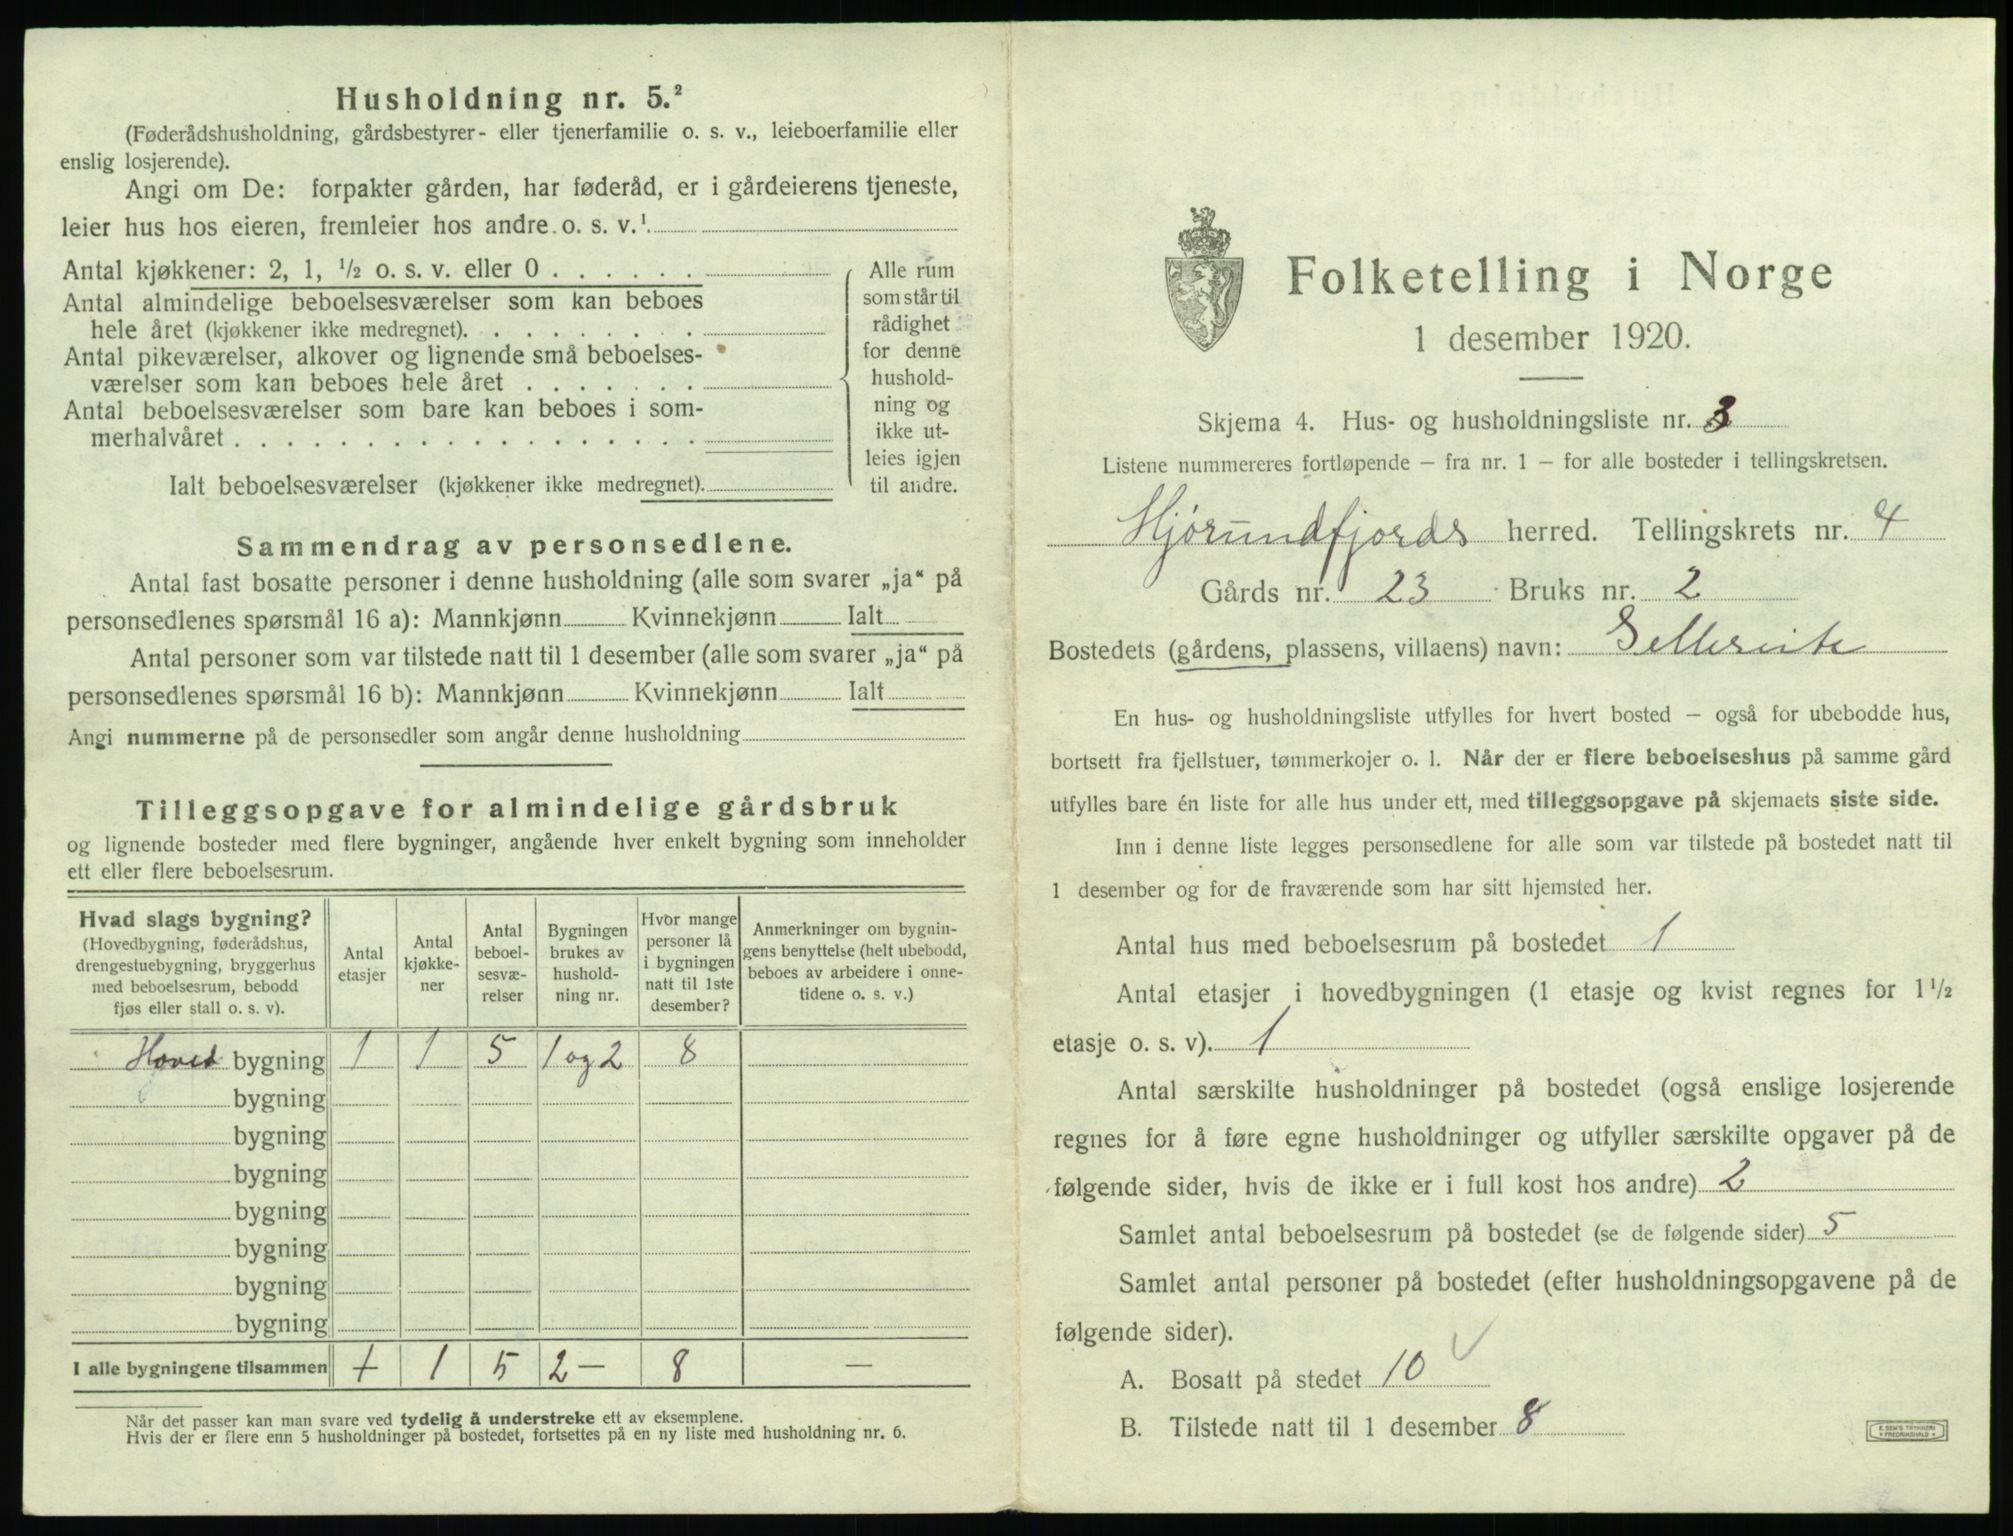 Husholdning nr. 5.²
(Føderådshusholdning, gårdsbestyrer- eller tjenerfamilie o. s. v., leieboerfamilie eller
enslig losjerende).
Angi om De: forpakter gården, har føderåd, er i gårdeierens tjeneste,
leier hus hos eieren, fremleier hos andre o. s. v.¹
Antal kjøkkener: 2, 1, ½ o. s. v. eller 0 . . . . . .
Antal almindelige beboelsesværelser som kan beboes
hele året (kjøkkener ikke medregnet). . . . . . . . .
Antal pikeværelser, alkover og lignende små beboelses-
værelser som kan beboes hele året . . . . . . .
Antal beboelsesværelser som bare kan beboes i som-
merhalvåret . . . . . . . . . . . . . . . . . .
Ialt beboelsesværelser (kjøkkener ikke medregnet).
Alle rum
som står til
rådighet
for denne
hushold-
ning og
ikke ut-
leies igjen
til andre.
Sammendrag av personsedlene.
Antal fast bosatte personer i denne husholdning (alle som svarer „ja“ på
personsedlenes spørsmål 16 a): Mannkjønn Kvinnekjønn Ialt
Antal personer som var tilstede natt til 1 desember (alle som svarer „ja“ på
personsedlenes spørsmål 16 b): Mannkjønn Kvinnekjønn Ialt
Angi nummerne på de personsedler som angår denne husholdning
Tilleggsopgave for almindelige gårdsbruk
og lignende bosteder med flere bygninger, angående hver enkelt bygning som inneholder
ett eller flere beboelsesrum.
Hvad slags bygning?
(Hovedbygning, føderådshus,
drengestuebygning, bryggerhus
med beboelsesrum, bebodd
fjøs eller stall o. s. v).
Antal
etasjer
Antal
kjøkke-
ner
Antal
beboel-
sesvæ-
relser
Bygningen
brukes av
hushold-
ning nr.
Hvor mange
personer lå
i bygningen
natt til 1ste
desember?
Anmerkninger om bygnin-
gens benyttelse (helt ubebodd,
beboes av arbeidere i onne-
tidene o. s. v.)
Hoved bygning 1 1 5 1 og 2 8
bygning
bygning
bygning
bygning
bygning
bygning
bygning
I alle bygningene tilsammen + 1 5 2 — 8 —
Når det passer kan man svare ved tydelig å understreke ett av eksemplene.
Hvis der er flere enn 5 husholdninger på bostedet, fortsettes på en ny liste med husholdning nr. 6.
Folketelling i Norge
1 desember 1920.
Skjema 4. Hus- og husholdningsliste nr. 3
Listene nummereres fortløpende – fra nr. 1 – for alle bosteder i tellingskretsen.
Hjørundfjords herred. Tellingskrets nr. 4
Gårds nr. 23 Bruks nr. 2
Bostedets (gårdens, plassens, villaens) navn:
En hus- og husholdningsliste utfylles for hvert bosted – også for ubebodde hus,
bortsett fra fjellstuer, tømmerkojer o. l. Når der er flere beboelseshus på samme gård
utfylles bare én liste for alle hus under ett, med tilleggsopgave på skjemaets siste side.
Inn i denne liste legges personsedlene for alle som var tilstede på bostedet natt til
1 desember og for de fraværende som har sitt hjemsted her.
Antal hus med beboelsesrum på bostedet 1
Antal etasjer i hovedbygningen (1 etasje og kvist regnes for 1½
etasje o. s. v). 1
Antal særskilte husholdninger på bostedet (også enslige losjerende
regnes for å føre egne husholdninger og utfyller særskilte opgaver på de
følgende sider, hvis de ikke er i full kost hos andre) 2
Samlet antal beboelsesrum på bostedet (se de følgende sider) 5
Samlet antal personer på bostedet (efter husholdningsopgavene på de
følgende sider).
A. Bosatt på stedet 10 ✓
B. Tilstede natt til 1 desember 8
E. SEM'S TRYKKERI
FREDRIKSHALD